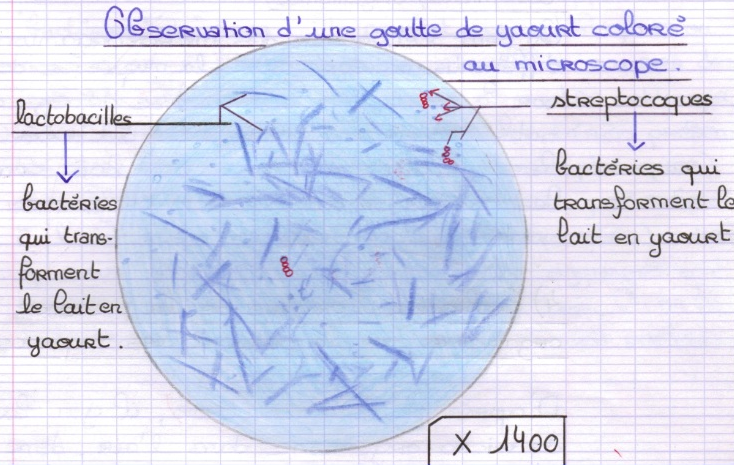 Observation d'une goutte de yaourt coloré
au microscope.
lactobacilles
bactéries
qui trans-
forment
le lait en
yaourt.
streptocoques
bactéries qui
transforment le
lait en yaourt
X 1400